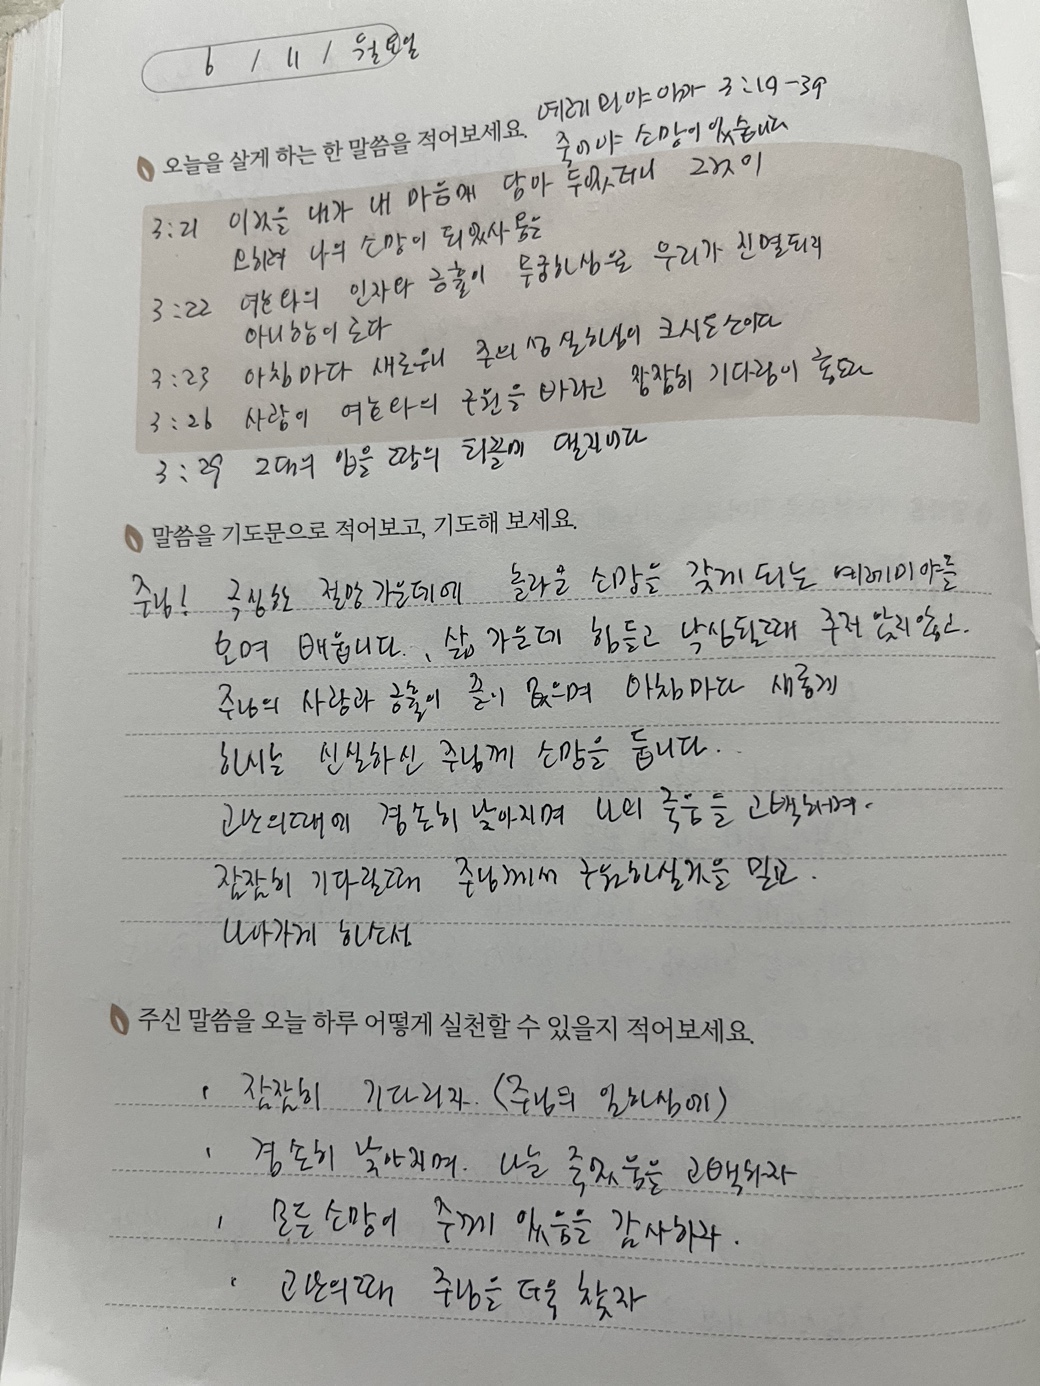 6 / 11 / 월요일
예레미야 애가 3:19-39
오늘을 살게 하는 한 말씀을 적어보세요.
죽어야 소망이 있습니다
3:21 이것을 내가 내 마음에 담아 두었더니 그것이
오히려 나의 소망이 되었사옴은
3:22 여호와의 인자와 긍휼이 무궁하심으로 우리가 진멸되지
아니함이로다
3:23 아침마다 새로우니 주의 성실하심이 크시도소이다
3:26 사람이 여호와의 구원을 바라고 잠잠히 기다림이 좋도다
3:29 그대의 입을 땅의 티끌에 댈지어다
말씀을 기도문으로 적어보고, 기도해 보세요.
주님! 극심한 절망 가운데에 놀라운 소망을 갖게 되는 예레미야를
보며 배웁니다. 삶 가운데 힘들고 낙심될때 주저 앉지 않고.
주님의 사랑과 긍휼이 끝이 없으며 아침마다 새롭게
하시는 신실하신 주님께 소망을 둡니다..
고난의때에 겸손히 낮아지며 나의 죽음을 고백하며.
잠잠히 기다릴때 주님께서 구원하실것을 믿고.
나아가게 하소서
주신 말씀을 오늘 하루 어떻게 실천할 수 있을지 적어보세요.
· 잠잠히 기다리자. (주님의 일하심에)
· 겸손히 낮아지며. 나는 죽었음을 고백하자
· 모든 소망이 주께 있음을 감사하자.
· 고난의때 주님을 더욱 찾자